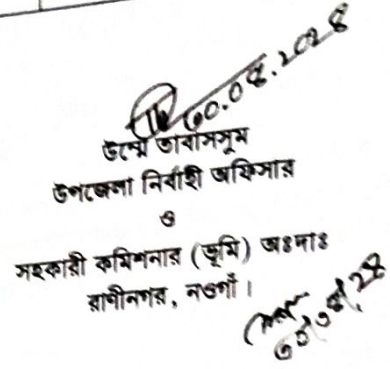 ৩০.০৪.২০২৪
উম্মে তাবাসসুম
উপজেলা নির্বাহী অফিসার
ও
সহকারী কমিশনার (ভূমি) অঃদাঃ
রাণীনগর, নওগাঁ।